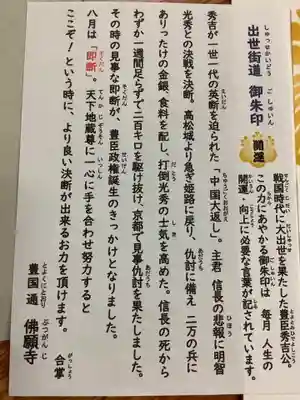 しゅっせかいどう ごしゅいん
出世街道 御朱印
開運
せんごくじだい だいしゅっせ は とよとみひでよしこう
戦国時代に大出世を果たした豊臣秀吉公。
この力にあやかる御朱印は 毎月 人生の
開運・向上に必要な言葉が記されています。
秀吉が一世一代の英断を迫られた「中国大返し」。主君 信長の悲報に明智
光秀との決戦を決断、高松城より急ぎ姫路に戻り、仇討に備え 二万の兵に
ありったけの金銀、食料を配し、打倒光秀の士気を高めた。信長の死から
わずか一週間足らずで二百キロを駆け抜け、京都で見事仇討を果たしました。
その時の見事な即断が、豊臣政権誕生のきっかけとなりました。
八月は「即断」。天下地蔵尊に一心に手を合わせ努力すると
ここぞ！という時に、より良い決断が出来るお力を頂けます。
合掌
豊国通 佛願寺